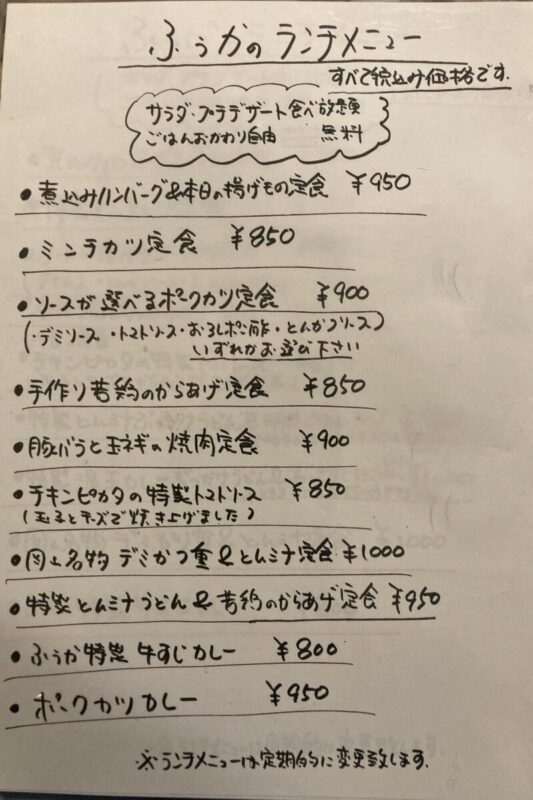 ふぅかのランチメニュー
すべて税込み価格です.
サラダ・プチデザート食べ放題
ごはんおかわり自由 無料
・煮込みハンバーグ&本日の揚げもの定食 ¥950
・ミンチカツ定食 ¥850
・ソースが選べるポークカツ定食 ¥900
(・デミソース・トマトソース・おろしポン酢・とんかつソース)
いずれかお選び下さい
・手作り若鶏のからあげ定食 ¥850
・豚バラと玉ネギの焼肉定食 ¥900
・チキンピカタの特製トマトソース ¥850
(玉子とチーズで焼き上げました)
・岡山名物 デミかつ重&とんミナ定食 ¥1000
・特製とんミナうどん&若鶏のからあげ定食 ¥950
・ふぅか特製 牛すじカレー ¥800
・ポークカツカレー ¥950
※ランチメニューは定期的に変更致します.